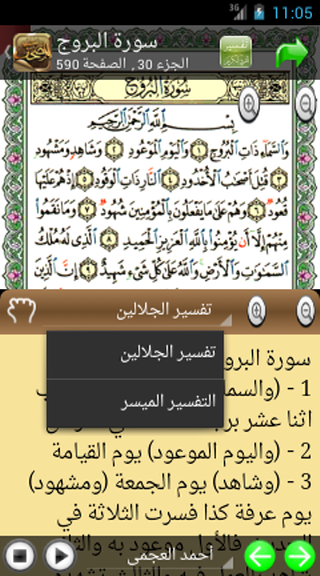 3G 11:05
سورة البروج
الجزء 30, الصفحة 590
تفسير
سُورَةُ البُرُوجِ
بِسْمِ اللَّهِ الرَّحْمَنِ الرَّحِيمِ
وَالسَّمَاءِ ذَاتِ الْبُرُوجِ ١ وَالْيَوْمِ الْمَوْعُودِ ٢ وَشَاهِدٍ وَمَشْهُودٍ
٣ قُتِلَ أَصْحَابُ الْأُخْدُودِ ٤ النَّارِ ذَاتِ الْوَقُودِ ٥ إِذْ هُمْ عَلَيْهَا
قُعُودٌ ٦ وَهُمْ عَلَى مَا يَفْعَلُونَ بِالْمُؤْمِنِينَ شُهُودٌ ٧ وَمَا نَقَمُوا
مِنْهُمْ إِلَّا أَن يُؤْمِنُوا بِاللَّهِ الْعَزِيزِ الْحَمِيدِ ٨ الَّذِي لَهُ مُلْكُ
السَّمَاوَاتِ وَالْأَرْضِ وَاللَّهُ عَلَى كُلِّ شَيْءٍ شَهِيدٌ ٩ إِنَّ الَّذِينَ
تفسير الجلالين
تفسير الجلالين
التفسير الميسر
سورة البرو
1 - (والسم
اثنا عشر بر
2 - (واليوم الموعود) يوم القيامة
3 - (وشاهد) يوم الجمعة (ومشهود)
يوم عرفة كذا فسرت الثلاثة في
أحمد العجمي